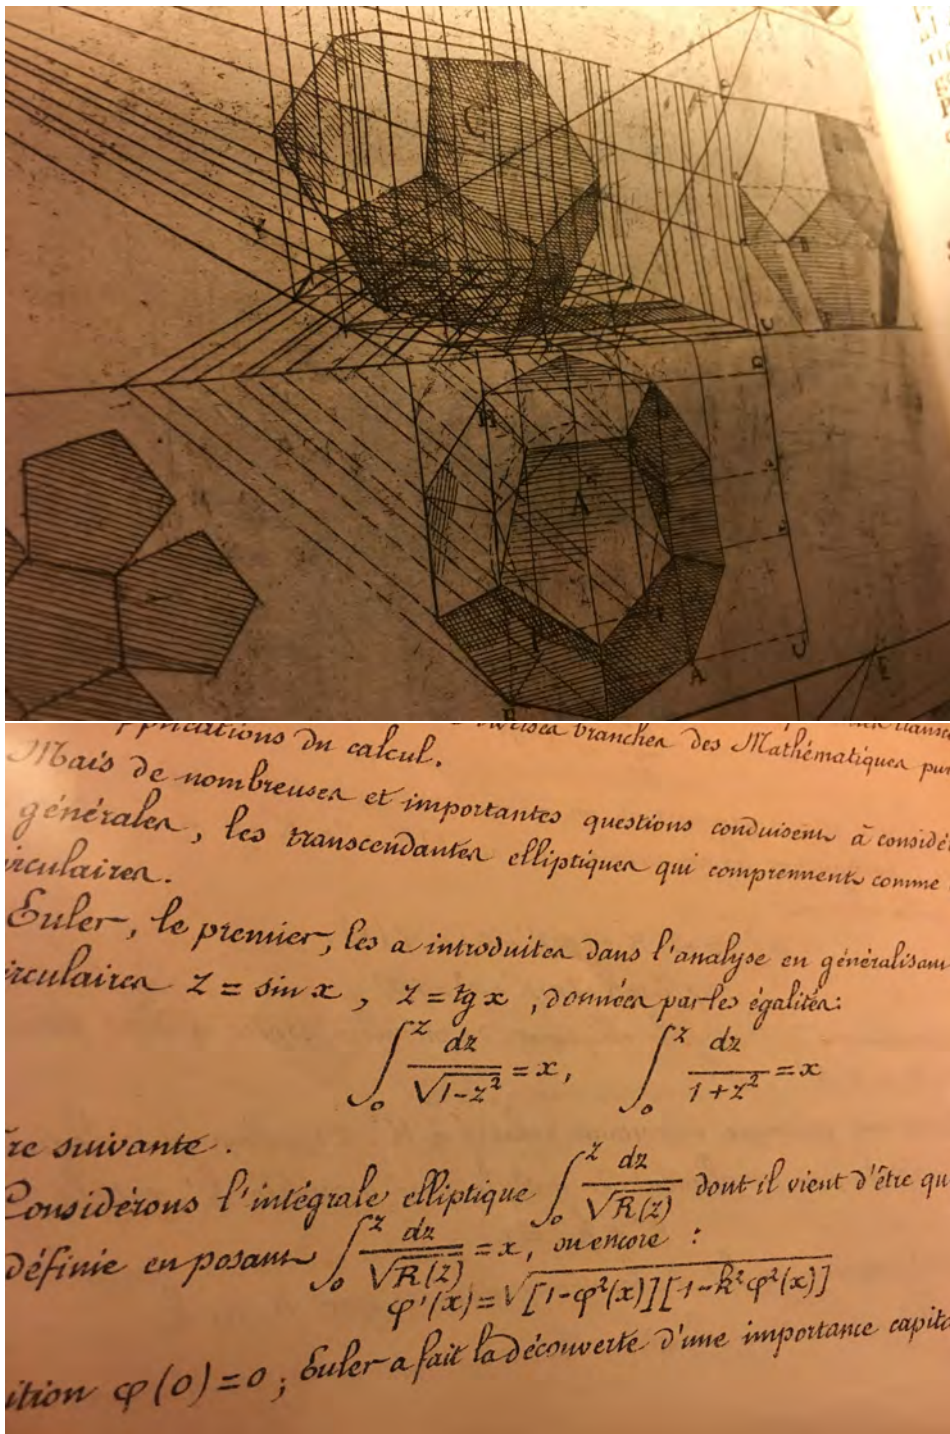 C
A
H
A
B
E
applications du calcul.
branches des Mathématiques pur
Mais de nombreuses et importantes questions conduisent à considé
générales, les transcendantes elliptiques qui comprennent comme
irculaires.
Euler, le premier, les a introduites dans l'analyse en généralisant
irculaires z = sin x, z = tg x, données par les égalités:
∫₀^z dz/√(1-z²) = x, ∫₀^z dz/(1+z²) = x
re suivante.
Considérons l'intégrale elliptique ∫₀^z dz/√R(z) dont il vient d'être qu
définie en posant ∫₀^z dz/√R(z) = x, ou encore :
φ'(x) = √([1-φ²(x)][1-k²φ²(x)])
ition φ(0) = 0; Euler a fait la découverte d'une importance capita